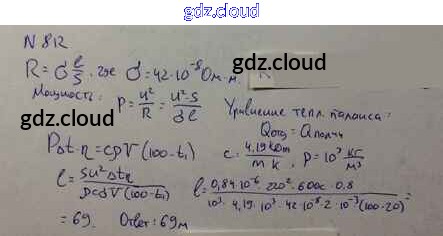 gdz.cloud
N 812
R = σ l/S, где σ = 42·10⁻⁸ Ом·м.
gdz.cloud
Мощность: P = u²/R = u²·S/σl
gdz.cloud
Уравнение тепл. баланса:
Qотд = Qполуч
PΔt·η = cρV(100-t₁)
c = 4,19 кДж/m k, ρ = 10³ кг/м³
l = Su²Δtη/ρcσV(100-t₁)
l = 0,84·10⁻⁶·220²·600с·0,8/10³·4,19·10³·42·10⁻⁸·2·10⁻³(100-20) =
= 69. Ответ: 69м
gdz.cloud